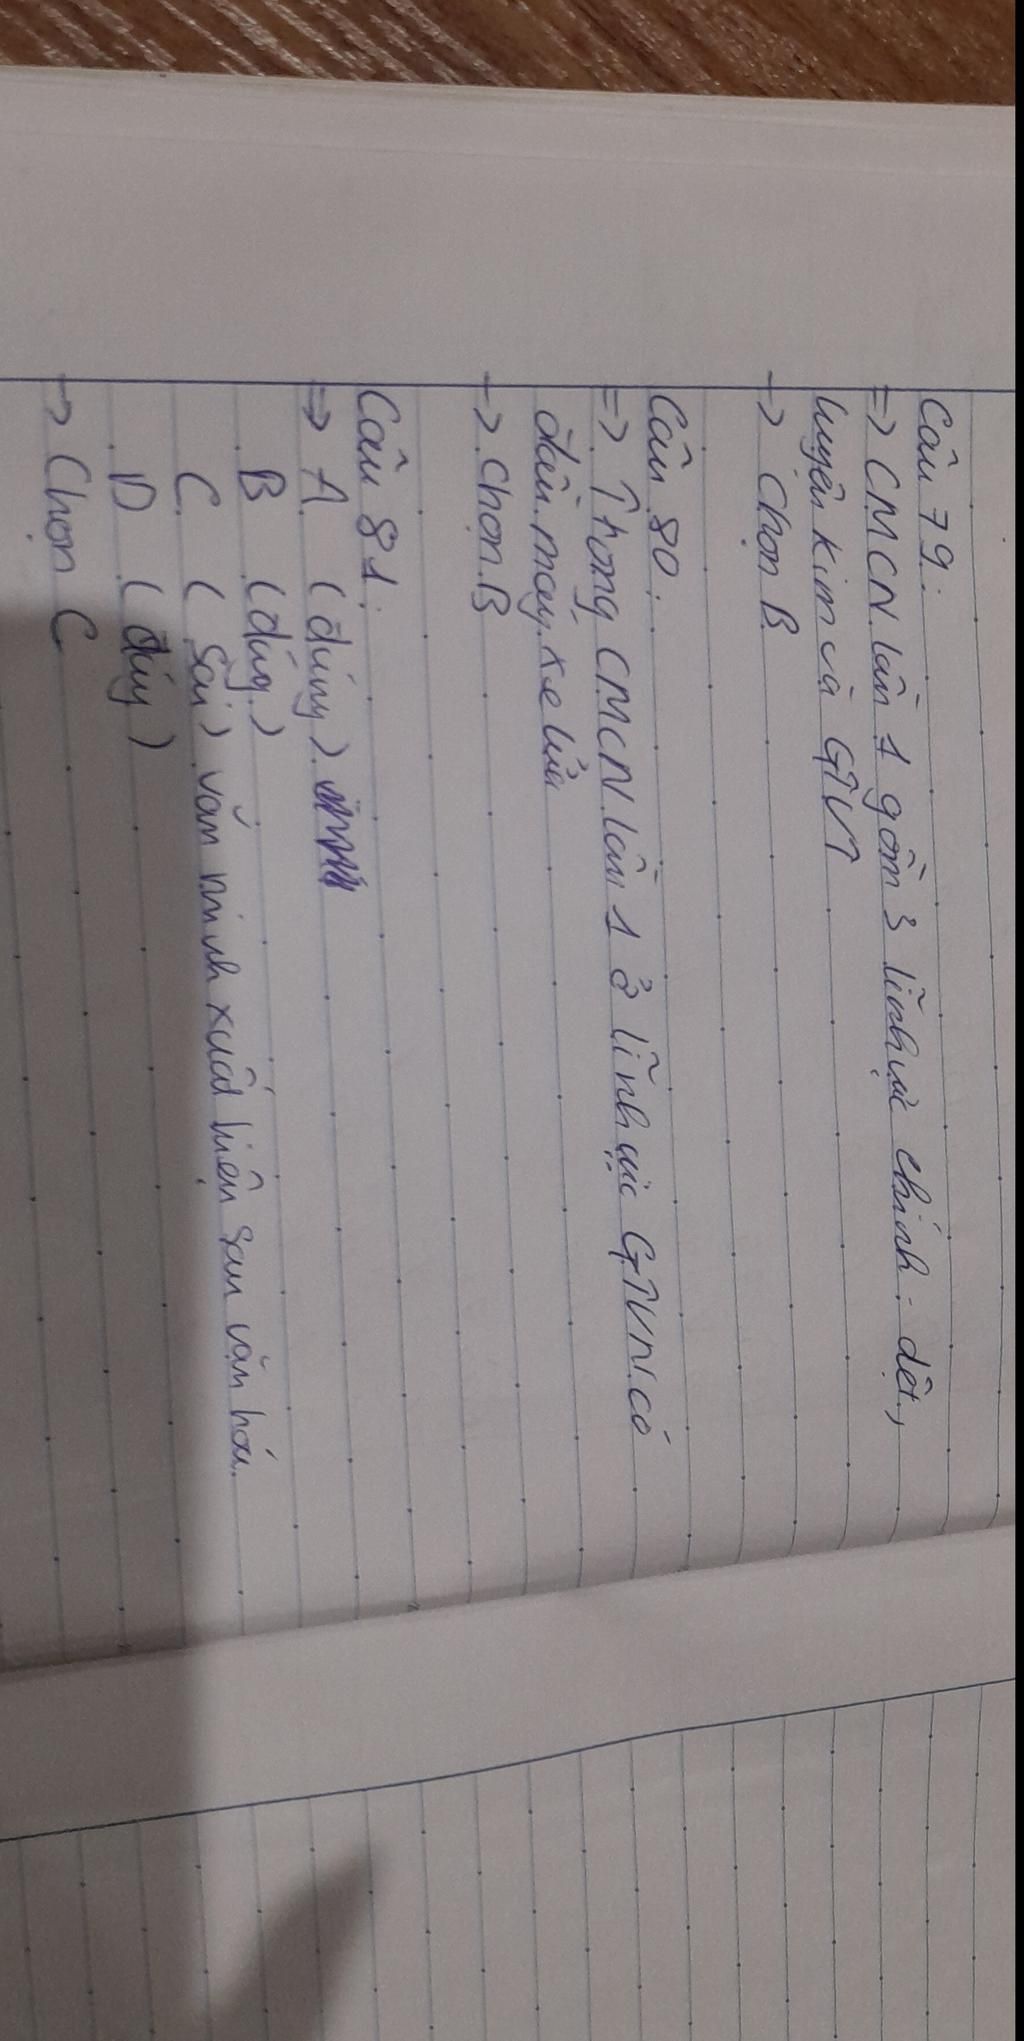 Câu 79:
=> CMCN lần 1 gồm 3 lĩnh vực chính: dệt,
luyện kim và GTVT
-> Chọn B
Câu 80:
=> Trong CMCN lần 1 ở lĩnh vực GTVT có
đầu máy xe lửa
-> Chọn B
Câu 81:
=> A (đúng)
B (đúng)
C (sai) văn minh xuất hiện sau văn hóa.
D (đúng)
-> Chọn C